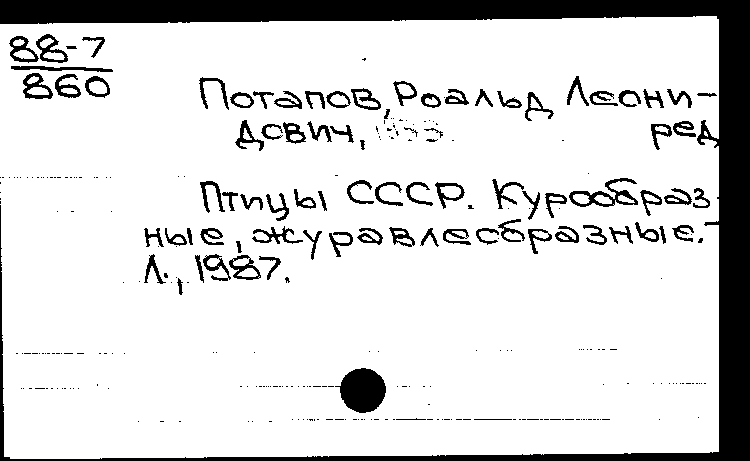 88-7
860
Потапов, Роальд Леони-
дович, 1933 ред
Птицы СССР. Курообраз-
ные, журавлеобразные. -
Л., 1987.